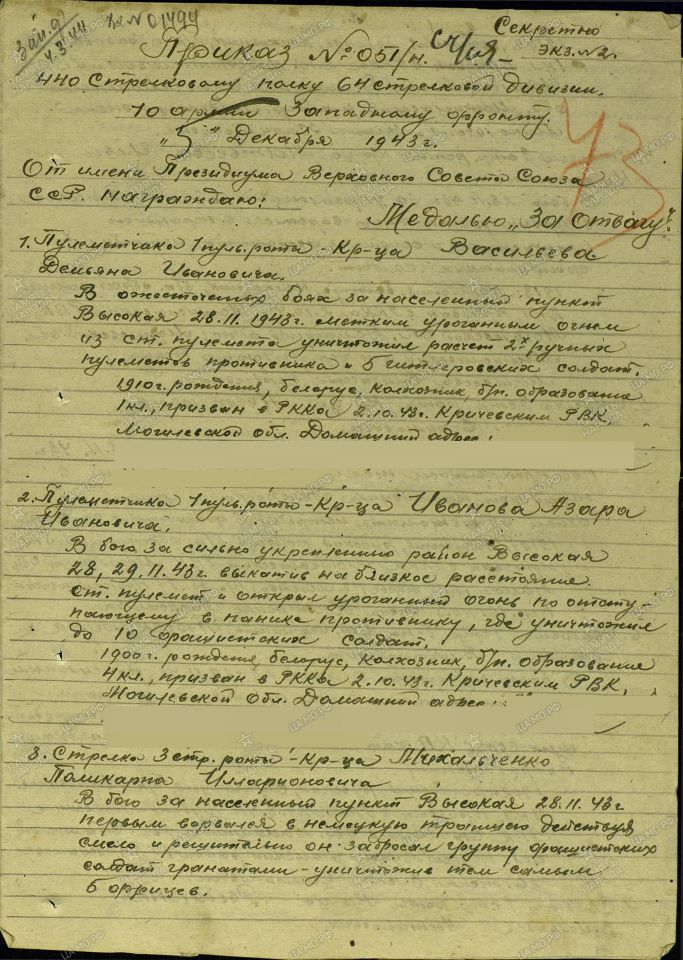 Зам. 92
4.3.44
Вх №01494
Секретно
экз. №2.
Приказ №051/н.
440 Стрелковому полку 64 стрелковой дивизии.
10 армии Западному фронту.
„5" Декабря 1943 г.
73
От имени Президиума Верховного Совета Союза
ССР. Награждаю:
Медалью „За отвагу".
1. Пулеметчика 1 пул. роты - Кр-ца Васильева
Демьяна Ивановича.
В ожесточеных боях за населенный пункт
Высокая 28.11.1943 г. метким ураганным огнем
из ст. пулемета уничтожил расчет 2х ручных
пулеметов противника и 5 гитлеровских солдат.
1910 г. рождения, белорус, колхозник, б/п. образование
1 кл., призван в РККА 2.10.43 г. Кричевским РВК,
Могилевской обл. Домашний адрес:
2. Пулеметчика 1 пул. роты - Кр-ца Иванова Азара
Ивановича.
В бою за сильно укрепленный район Высокая
28, 29.11.43 г. выкатив на близкое расстояние
ст. пулемет и открыл ураганный огонь по отсту
пающему в панике противнику, где уничтожил
до 10 фашистских солдат.
1900 г. рождения, белорус, колхозник, б/п. образование
4 кл., призван в РККА 2.10.43 г. Кричевским РВК,
Могилевской обл. Домашний адрес:
3. Стрелка 3 стр. роты - Кр-ца Михальченко
Поликарпа Илларионовича
В бою за населенный пункт Высокая 28.11.43 г
первым ворвался в немецкую траншею действуя
смело и решительно он забросал группу фашистских
солдат гранатами - уничтожив тем самым
5 фрицев.